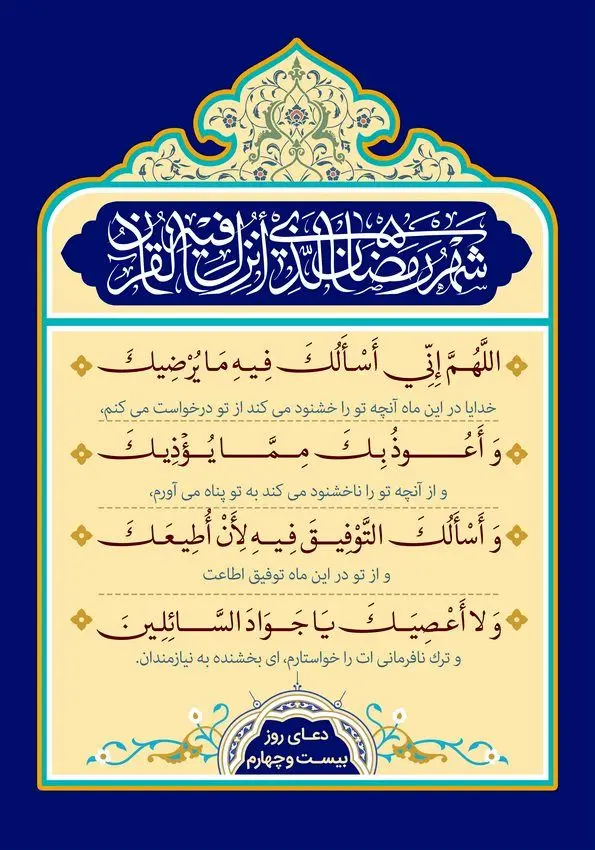 شهر رمضان الذي أنزل فيه القرآن
اللَّهُمَّ إِنِّي أَسْأَلُكَ فِيهِ مَا يُرْضِيكَ
خدایا در این ماه آنچه تو را خشنود می کند از تو درخواست می کنم،
وَ أَعُوذُ بِكَ مِمَّا يُؤْذِيكَ
و از آنچه تو را ناخشنود می کند به تو پناه می آورم،
وَ أَسْأَلُكَ التَّوْفِيقَ فِيهِ لِأَنْ أُطِيعَكَ
و از تو در این ماه توفیق اطاعت
وَ لا أَعْصِيَكَ يَا جَوَادَ السَّائِلِينَ
و ترك نافرمانی ات را خواستارم، ای بخشنده به نیازمندان.
دعای روز
بیست و چهارم